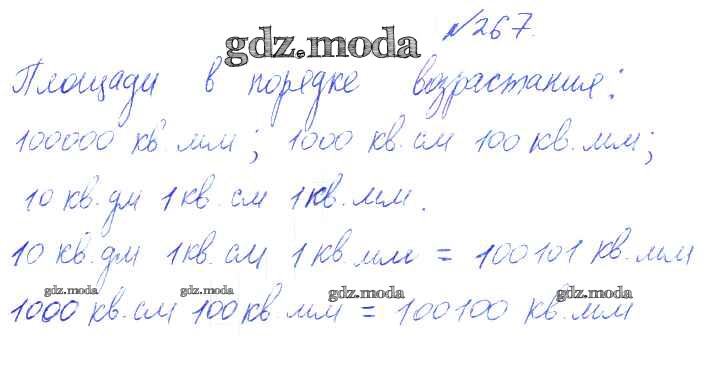 №267.
gdz.moda
Площади в порядке возрастания:
100000 кв.мм; 1000 кв.см 100 кв.мм;
10 кв.дм 1 кв.см 1 кв.мм.
10 кв.дм 1 кв.см 1 кв.мм = 100101 кв.мм
gdz.moda gdz.moda gdz.moda gdz.moda
1000 кв.см 100 кв.мм = 100100 кв.мм